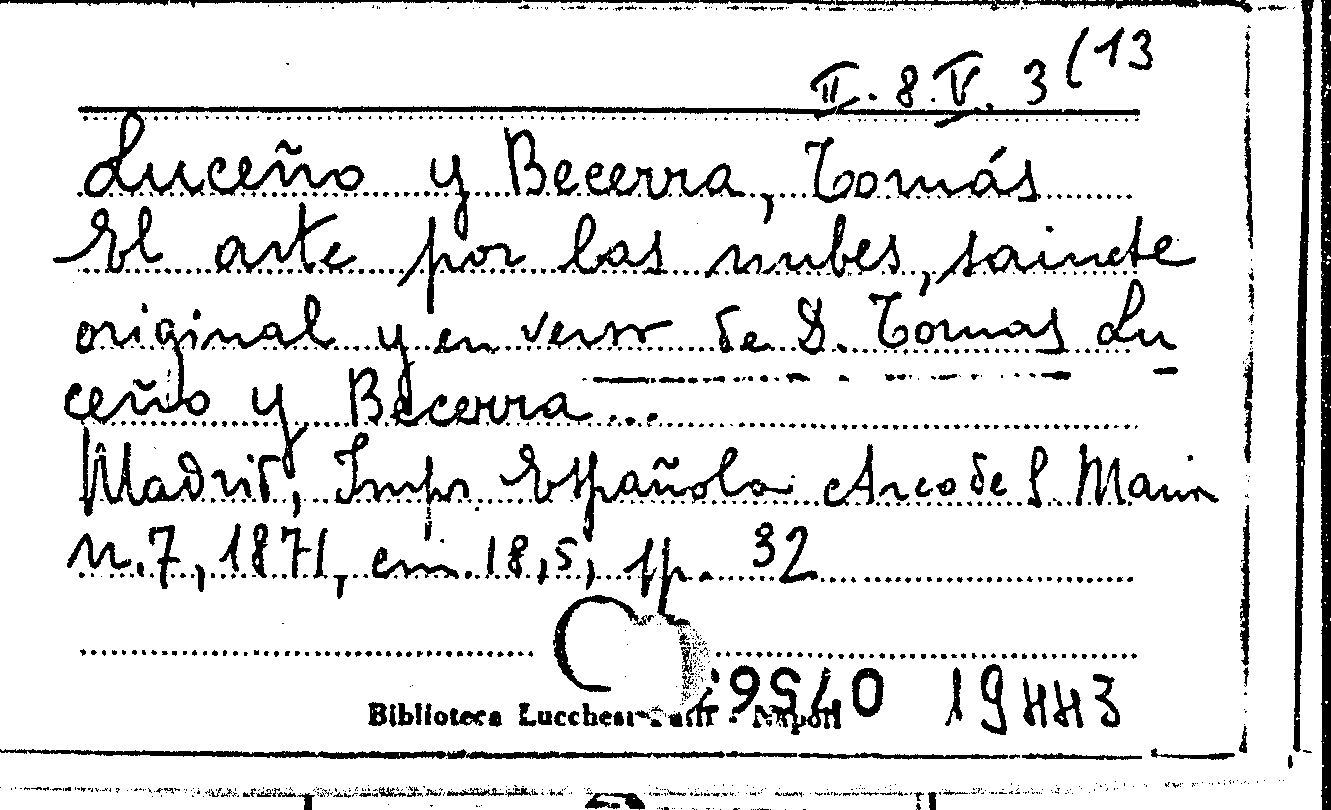 II. 8. V. 3 (13
Luceño y Becerra, Tomás
El arte por las nubes, sainete
original y en verso de D. Tomas Lu
ceño y Becerra...
Madrid, Impr Española Arco de S. Maria
n. 7, 1871, cm. 18,5, pp. 32
Biblioteca Lucchesi-Palli - Napoli
19443